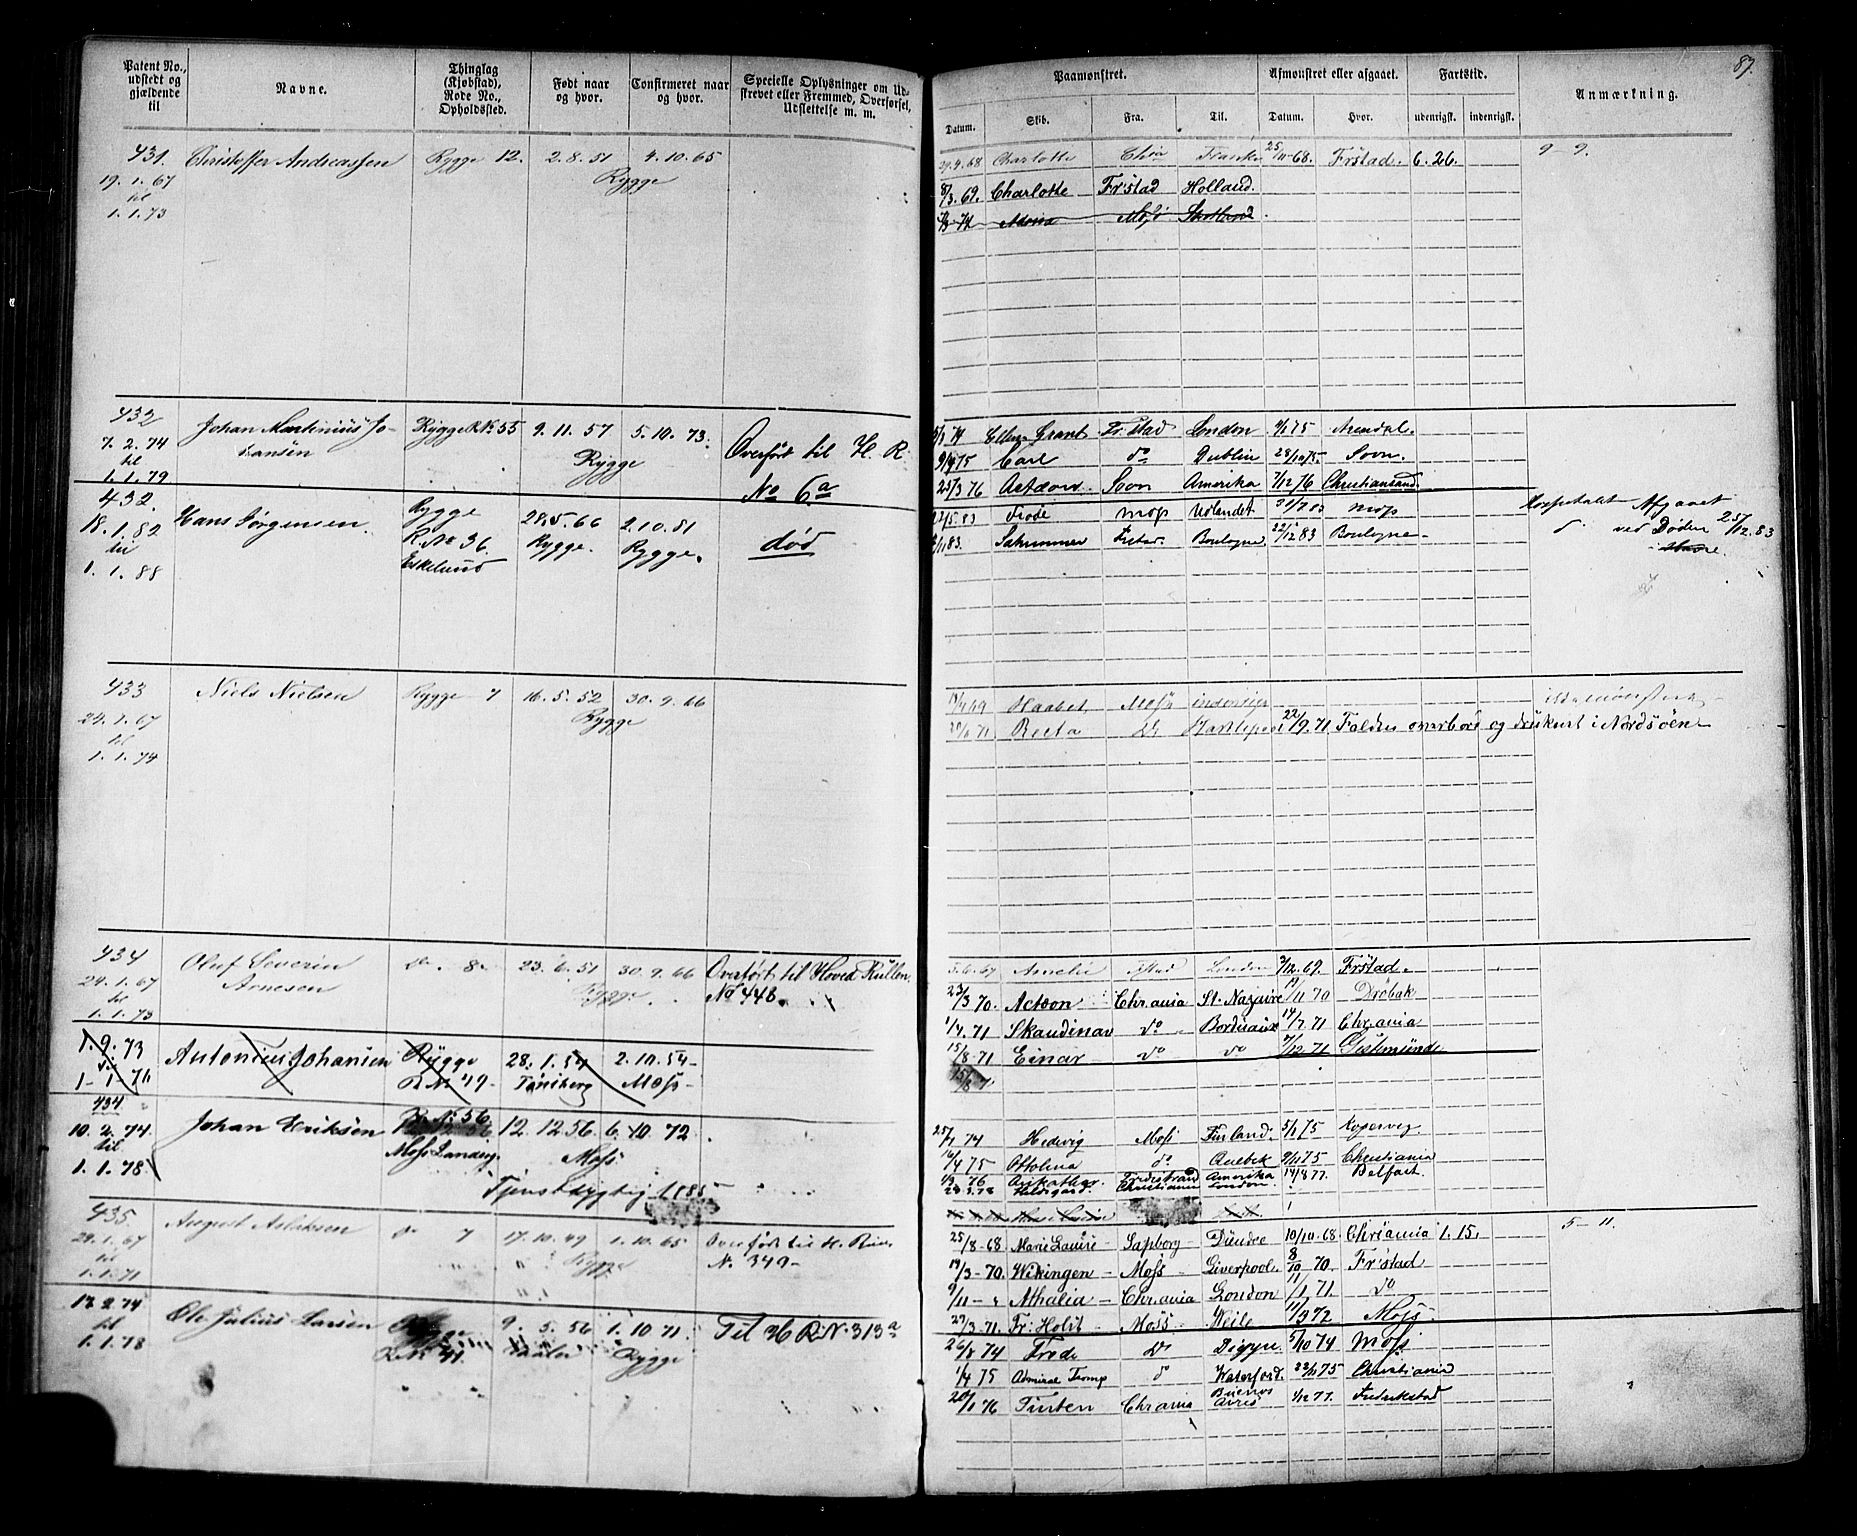 87.
Patent No., udstedt og gjældende til
Navne.
Thinglag (Kjøbstad), Rode No., Opholdssted.
Født naar og hvor.
Confirmeret naar og hvor.
Specielle Oplysninger om Udskrevet eller Fremmed, Overførsel, Udslettelse m. m.
Paamønstret.
Afmønstret eller afgaaet.
Fartstid.
Anmærkning.
Datum.
Skib.
Fra.
Til.
Datum.
Hvor.
udenrigsk.
indenrigsk.
431.
19.1.67
til
1.1.73
Christoffer Andreassen
Rygge 12.
2.8.51
4.10.65
Rygge
Charlotte
25/11-68.
Frstad.
6.26.
9-9.
8/3.69.
Charlotte
Frstad
Holland.
Moss
432
7.2.74
til
1.1.79
Johan Martinius Johansen
Rygge R.No 55
9.11.57
5.10.73.
Rygge
Overført til H. R.
No 6a
Ellen Grant
Frstad
London
Arendal.
Carl
do
Dublin
28/10 75.
Sovn.
25/3 76
Actæon
Son
Amerika
7/12 76
Christiansand.
432.
18.1.82
til
1.1.88
Hans Jørgensen
Rygge
R.No 36.
Eskelund
28.5.66
Rygge.
2.10.81
Rygge.
død
22/5.83
Frode
Moss
Udlandet
Moss
Frstad.
Boulogne.
22/12 83
Boulogne
Hospitalet Afgaaet
ved Døden 25/12.83
433
24.1.67
til
1.1.74
Niels Nielsen
Rygge 7
16.5.52
30.9.66
Rygge
Haabet
Moss
indenrigs
Recta
Do
Hartlepool
22/9.71
Falden overbord og druknet i Nordsøen
434
24.1.67
til
1.1.73
Oluf Severin
Arnesen
Do. 8
23.6.51
30.9.66
Rygge
Overført til Hoved Rullen
No 448.
5.6.69
Amelie
Frstad
London
3/12.69.
Frstad.
23/3 70.
Actæon
Chr.ania
St. Nazaire
Drøbak
1/4.71
Skandinav
do
Bordeaux
14/7.71
Chr.ania
15/8-71
Einar
do
do
7/12.71
Gestmünde
1.9.73
til
1-1-76
Antonius Johansen
Rygge
R.No 49
28.1.54
Tønsberg
2.10.54
Moss
434
10.2.74.
til
1.1.78
Johan Eriksen
R.No 56
Moss Landsg.
12.12.56
Moss.
6.10.72
Tjenstdygtig 1885
74
Hedvig
Moss
Finland.
5/1 75
Kopervig.
16/4 75
Ottolina
do
Quebek
9/11 75
Christiania
Amerika
14/8 77.
Belfast.
Hildegard.
Christiania
London.
435.
24.1.67
til
1.1.71
August Aslaksen
Do 7
17.10.49
1.10.65
Rygge
Overført til H. Rul.
N. 349-
25/8-68
Marie Louise
Sapborg
Dundee
10/10-68
Chr.ania
1.15.
5-11.
19/3-70.
Wikingen
Moss
Liverpool
8/10 70.
Frstad
9/11-"
Athalia
Chr.ania
London
11/1.71.
do
27/3.71.
Fr: Holst
Moss
Weile
Moss.
17.2.74
til
1.1.78
Ole Julius Larsen
Rygge
R.No 41.
9.5.56
Vaaler
1.10.71.
Rygge
Til H R N. 313a
26/8 74
Frede
Do
Dieppe
5/10 74
Moss
1/4 75
Admiral Tromp
do
Waterford.
22/11 75
Christiania
76
Chr.ania
Buenos
Ayres
1/12 77.
Fredrikstad